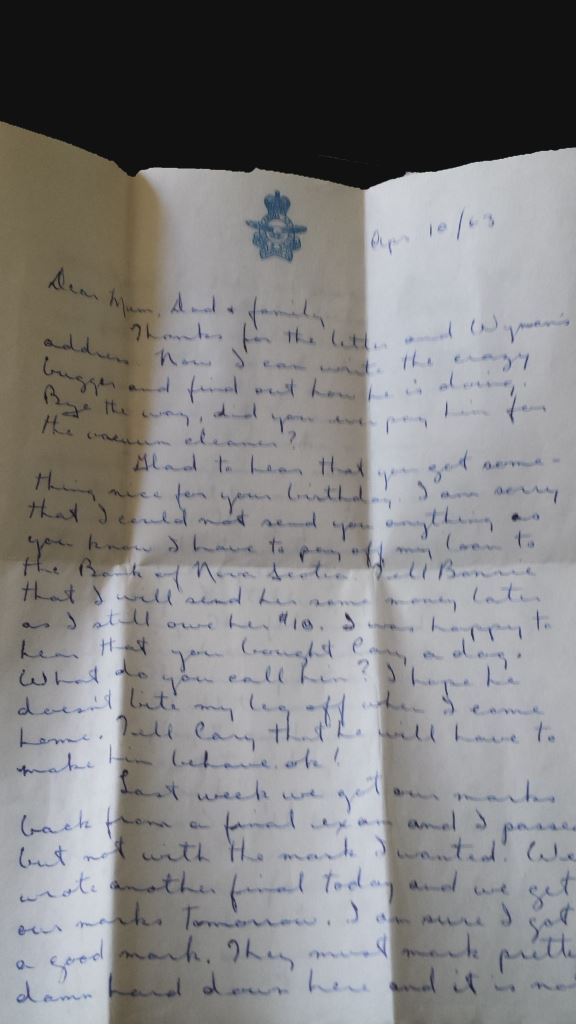 Apr 10/63
Dear Mum, Dad & family
Thanks for the letter and Wyman's
address. Now I can write the crazy
bugger and find out how he is doing.
Bye the way, did you ever pay him for
the vacuum cleaner?
Glad to hear that you got some-
thing nice for your birthday. I am sorry
that I could not send you anything as
you know I have to pay off my loan to
the Bank of Nova Scotia. Tell Bonnie
that I will send her some money later
as I still owe her $10. I was happy to
hear that you bought Cary a dog.
What do you call him? I hope he
doesn't bite my leg off when I come
home. Tell Cary that he will have to
make him behave ok!
Last week we got our marks
back from a final exam and I passe
but not with the mark I wanted. We
wrote another final today and we get
our marks tomorrow. I am sure I got
a good mark. They must mark prett
damn hard down here and it is not